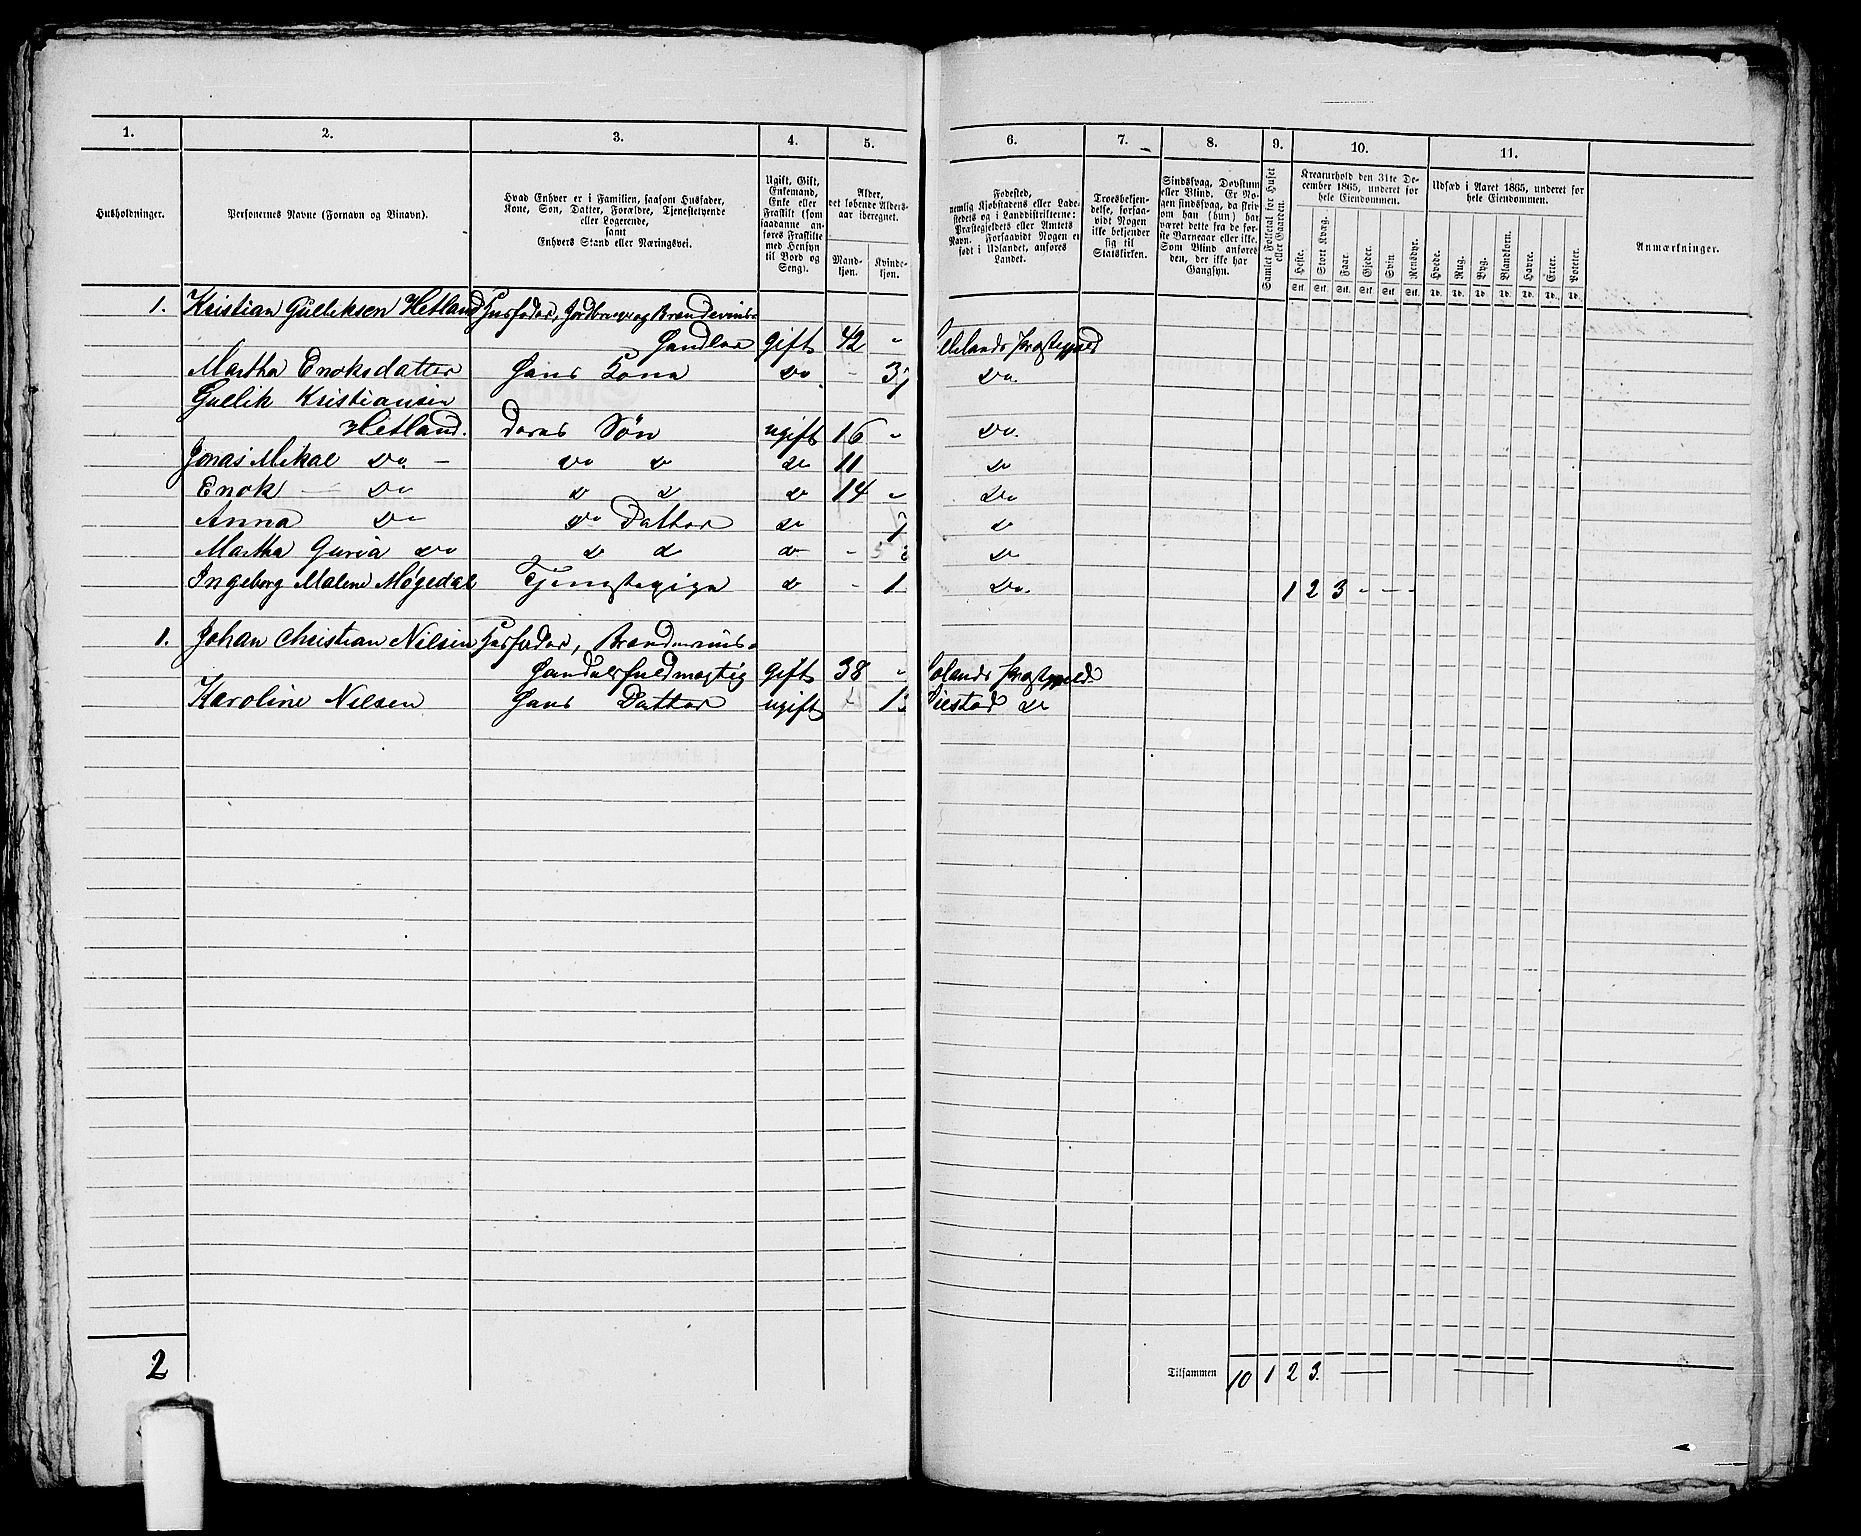 1. 2. 3. 4. 5. 6. 7. 8. 9. 10. 11.
Husholdninger.
Personernes Navne (Fornavn og Binavn).
Hvad Enhver er i Familien, saasom Husfader,
Kone, Søn, Datter, Forældre, Tjenestetyende
eller Logerende,
samt
Enhvers Stand eller Næringsvei.
Ugift, Gift,
Enkemand,
Enke eller
Fraskilt (som
saadanne an-
føres Fraskilte
med Hensyn
til Bord og
Seng).
Alder,
det løbende Alders-
aar iberegnet.
Mand-
kjøn.
Kvinde-
kjøn.
Fødested,
nemlig Kjøbstadens eller Lade-
stedets og i Landdistrikterne:
Præstegjeldets eller Amtets
Navn. Forsaavidt Nogen er
født i Udlandet, anføres
Landet.
Troesbekjen-
delse, forsaa-
vidt Nogen
ikke bekjender
sig til
Statskirken.
Sindssvag, Døvstum
eller Blind. Er No-
gen sindssvag, da skriv
om han (hun) har
været dette fra de før-
ste Barneaar eller ikke.
Som Blind anføres
den, der ikke har
Gangsyn.
Samlet Folketal for Huset
eller Gaarden.
Kreaturhold den 31te De-
cember 1865, underet for
hele Eiendommen.
Heste. Stort Kvæg. Faar. Gjeder. Svin. Rensdyr.
Stk. Stk. Stk. Stk. Stk. Stk.
Udsæd i Aaret 1865, underet for
hele Eiendommen.
Hvede. Rug. Byg. Blandkorn. Havre. Erter. Poteter.
Td. Td. Td. Td. Td. Td. Td.
Anmærkninger.
1. Kristian Gulliksen Hetland Husfader, Jordbruger og Brændeviins-
Handler gift 42 "
Martha Enoksdatter Hans Kona Do - Do.
Gullik Kristiansen
Hetland. Deres Søn ugift 16 " Do.
Jonas Mikal Do. - Do d do 11 do
Enok - Do d d d 14 " Do
Anna Do Do Datter do do
Martha Do d d d - do
Ingeborg Malene Møgedal Tjenestepige d - 1 Do. 1 2 3 - - -
1. Johan Christian Nilsen Husfader, Brændeviins-
Handelsfuldmægtig gift 38 " Præstegjeld
Karoline Nilsen Hans Datter ugift do
2
Tilsammen 10 1 2 3